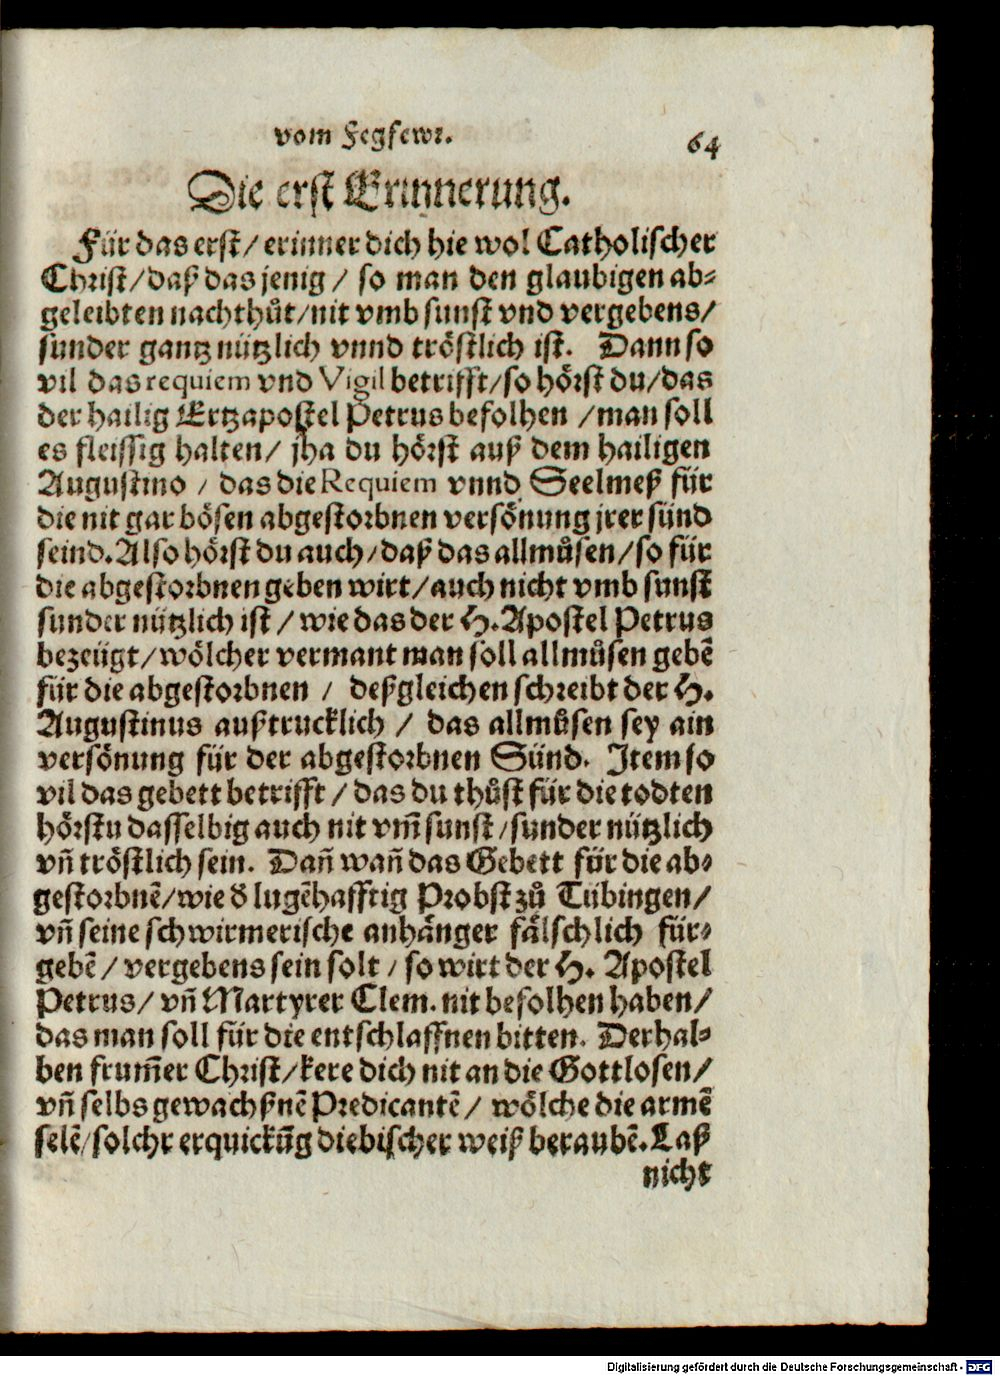 vom Fegfewr.
64
Die erst Erinnerung.
Für das erst/ erinner dich hie wol Catholischer
Christ/ daß das jenig / so man den glaubigen ab⸗
geleibten nachthůt/ nit vmb sunst vnd vergebens/
sunder gantz nützlich vnnd tröstlich ist. Dann so
vil das requiem vnd Vigil betrifft/ so hörst du/ das
der hailig Ertzapostel Petrus befolhen / man soll
es fleissig halten/ jha du hörst auß dem hailigen
Augustino / das die Requiem vnnd Seelmeß für
die nit gar bösen abgestorbnen versönung jrer sünd
seind. Also hörst du auch/ daß das allmůsen/ so für
die abgestorbnen geben wirt/ auch nicht vmb sunst
sunder nützlich ist / wie das der H. Apostel Petrus
bezeügt/ wölcher vermant man soll allmůsen gebẽ
für die abgestorbnen / deßgleichen schreibt der H.
Augustinus außtrucklich / das allmůsen sey ain
versönung für der abgestorbnen Sünd. Item so
vil das gebett betrifft / das du thůst für die todten
hörstu dasselbig auch nit vm̃ sunst/ sunder nützlich
vñ tröstlich sein. Dañ wañ das Gebett für die ab⸗
gestorbnẽ/ wie d̓ lugẽhafftig Probst zů Tübingen/
vñ seine schwirmerische anhänger fälschlich für⸗
gebẽ / vergebens sein solt / so wirt der H. Apostel
Petrus/ vñ Martyrer Clem. nit befolhen haben/
das man soll für die entschlaffnen bitten. Derhal⸗
ben frum̃er Christ/ kere dich nit an die Gottlosen/
vñ selbs gewachßnẽ Predicantẽ / wölche die armẽ
selẽ/ solchr erquickũg diebischer weiß beraubẽ. Laß
nicht
Digitalisierung gefördert durch die Deutsche Forschungsgemeinschaft - DFG